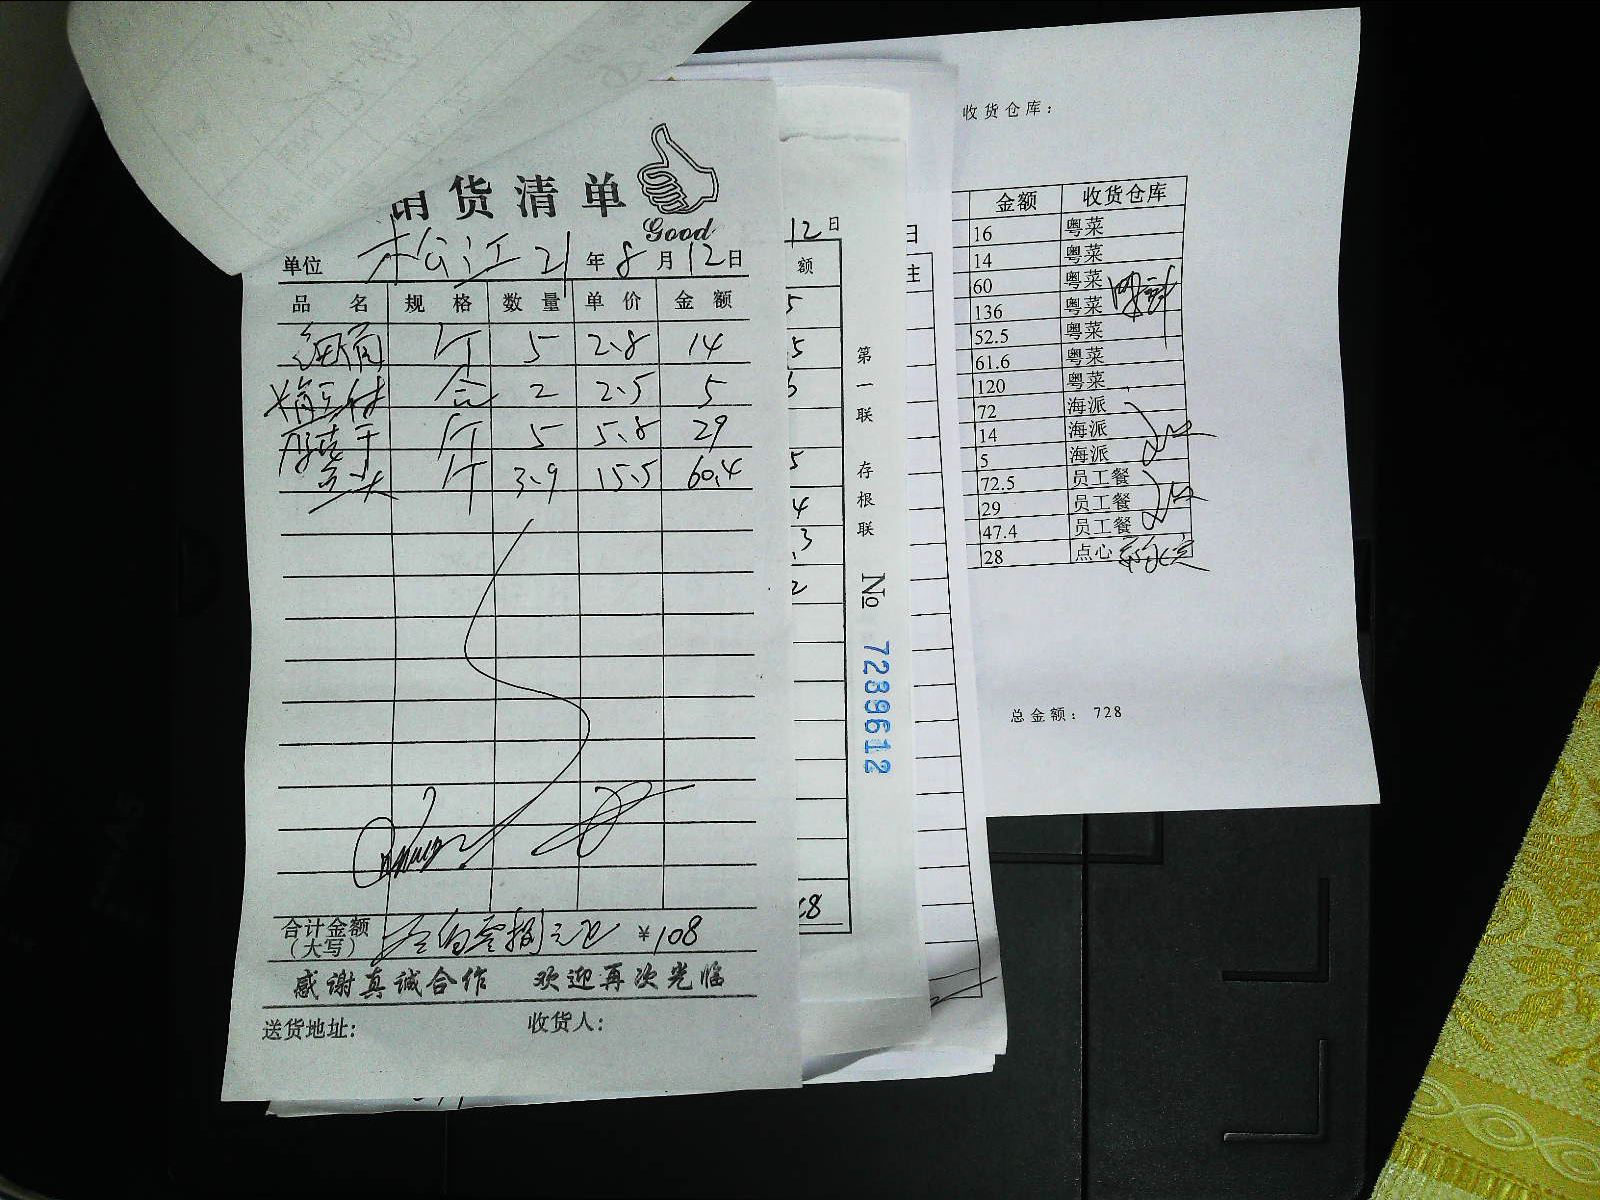 货清单
Good
单位 松江 21年8月12日
品名 规格 数量 单价 金额
斤 5 2.8 14
合 2 2.5 5
斤 5 5.8 29
斤 3.9 15.5 60.4
合计金额
(大写) ¥108
感谢真诚合作 欢迎再次光临
送货地址: 收货人:
12日
额
5
5
5
4
.3
2
8
第一联 存根联 № 7289612
日
注
收货仓库:
金额 收货仓库
16 粤菜
14 粤菜
60 粤菜
136 粤菜
52.5 粤菜
61.6 粤菜
120 粤菜
72 海派
14 海派
5 海派
72.5 员工餐
29 员工餐
47.4 员工餐
28 点心
总金额: 728